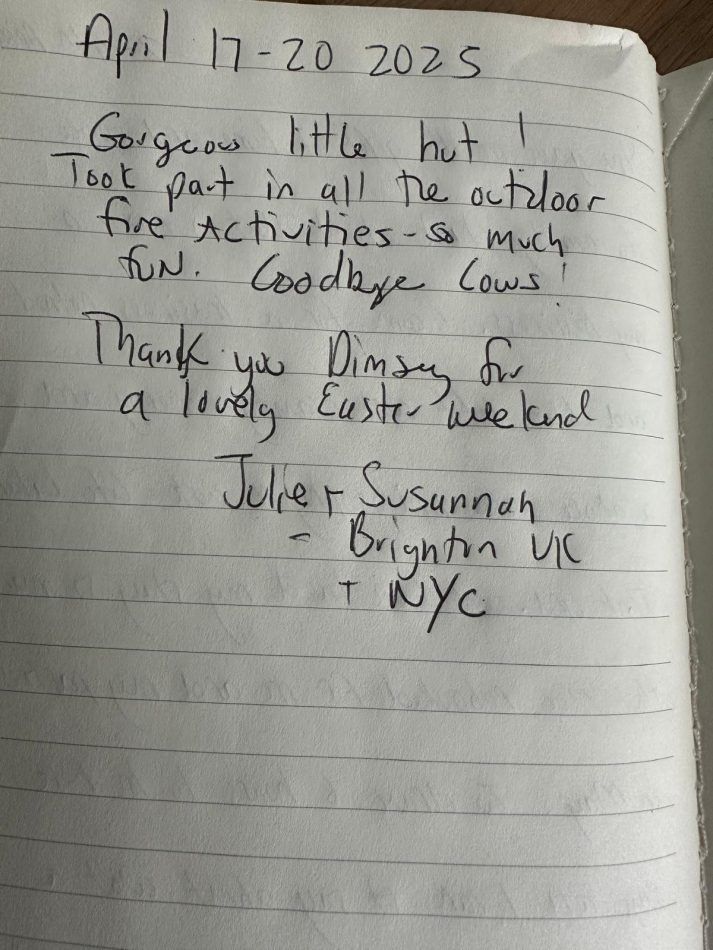 April 17-20 2025
Gorgeous little hut!
Took part in all the outdoor
fire activities - so much
fun. Goodbye Cows!
Thank you Dimsey for
a lovely Easter weekend
Julie + Susannah
- Brighton UK
+ NYC